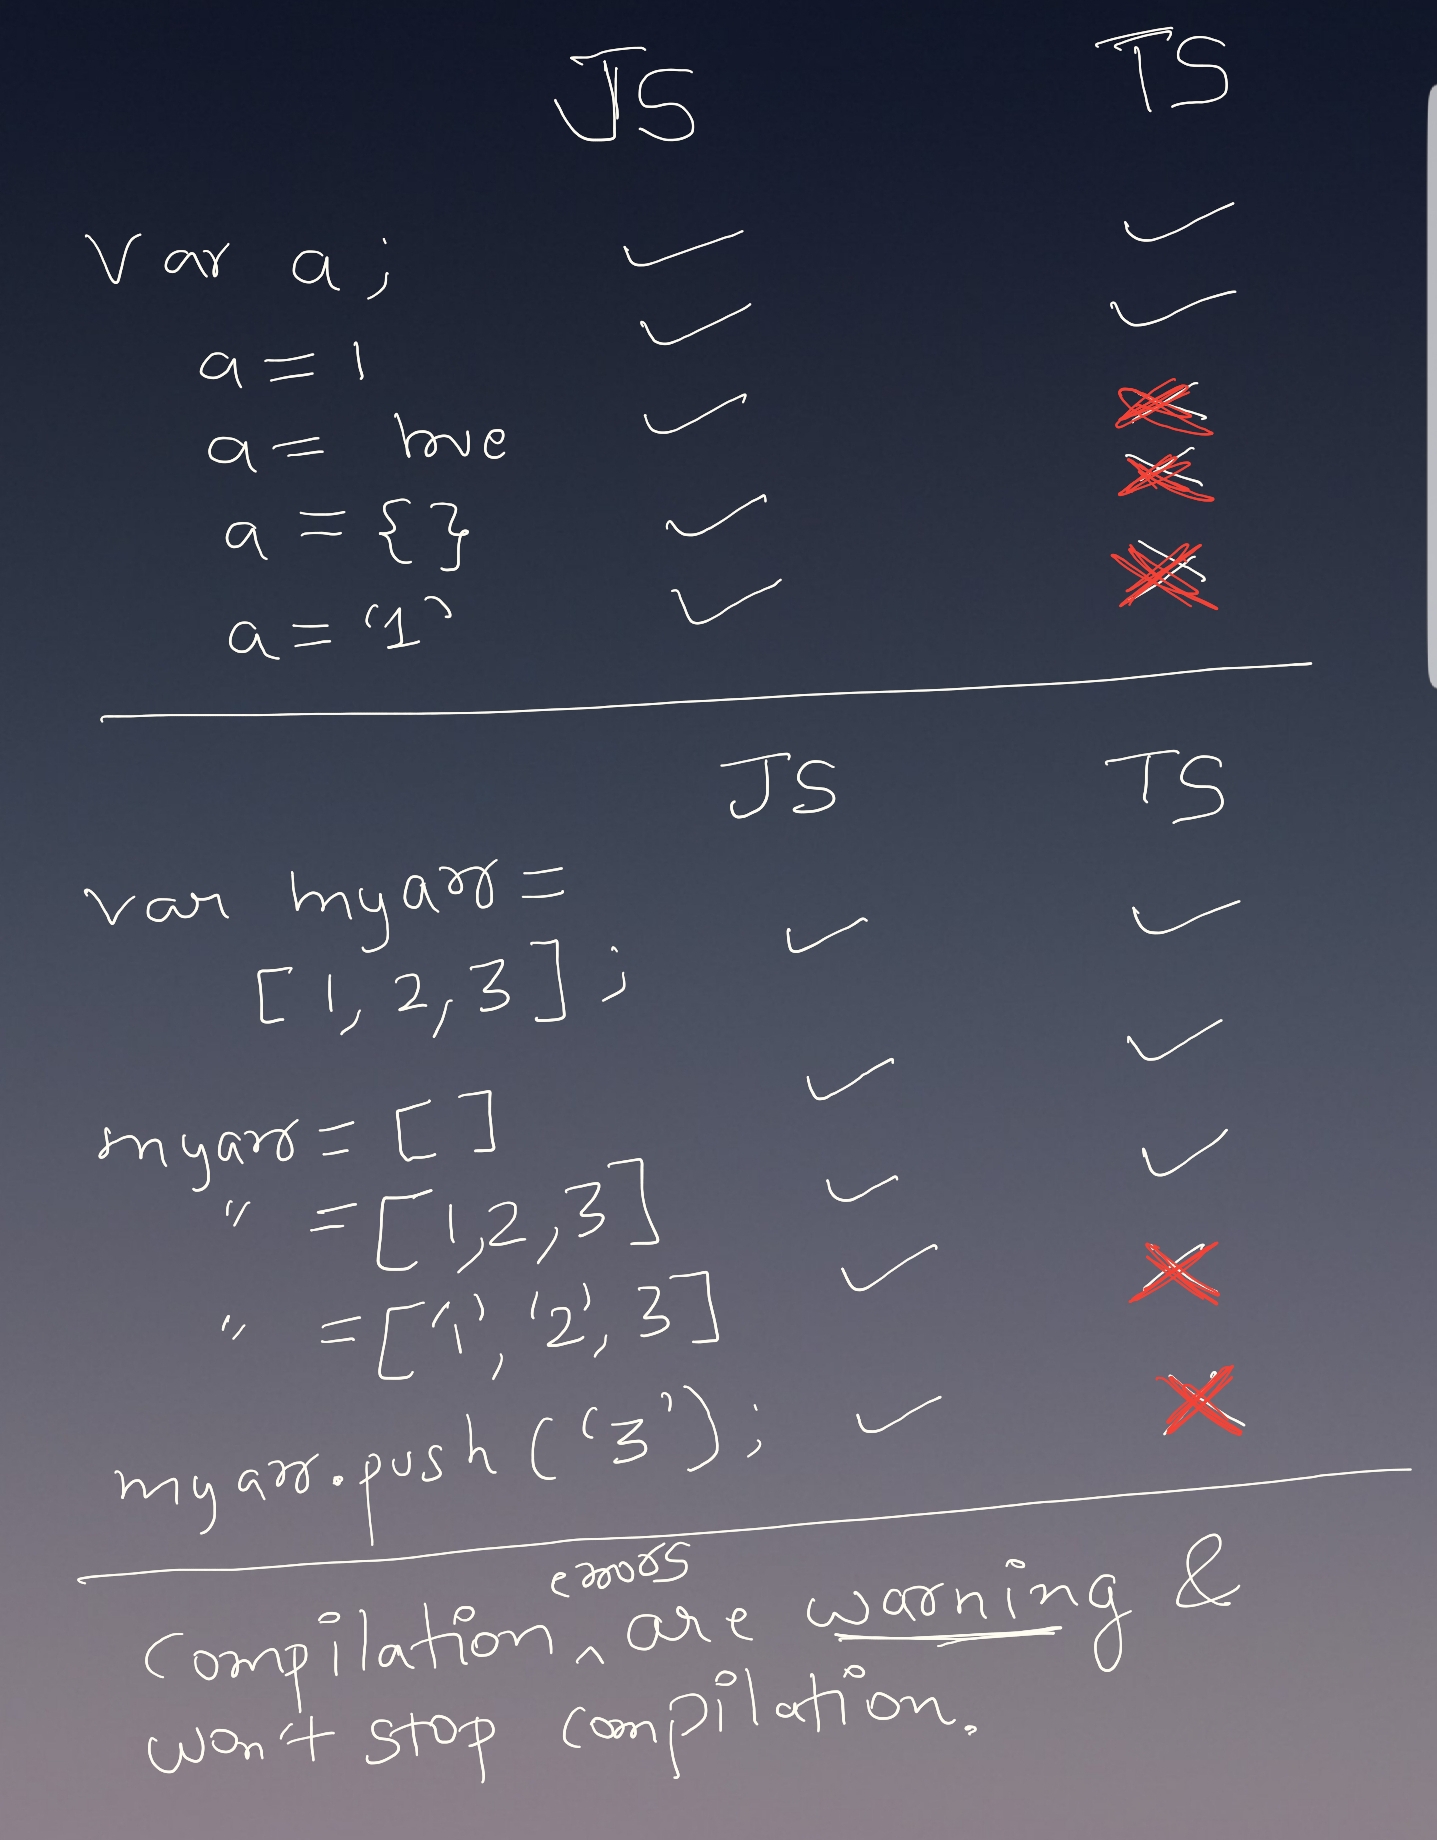 JS TS
Var a;
a = 1
a = true
a = {}
a = '1'
JS TS
var myarr =
[1, 2, 3];
myarr = []
" = [1,2,3]
" = ['1', '2', 3]
myarr.push('3');
errors
Compilation ^ are warning &
won't stop compilation.